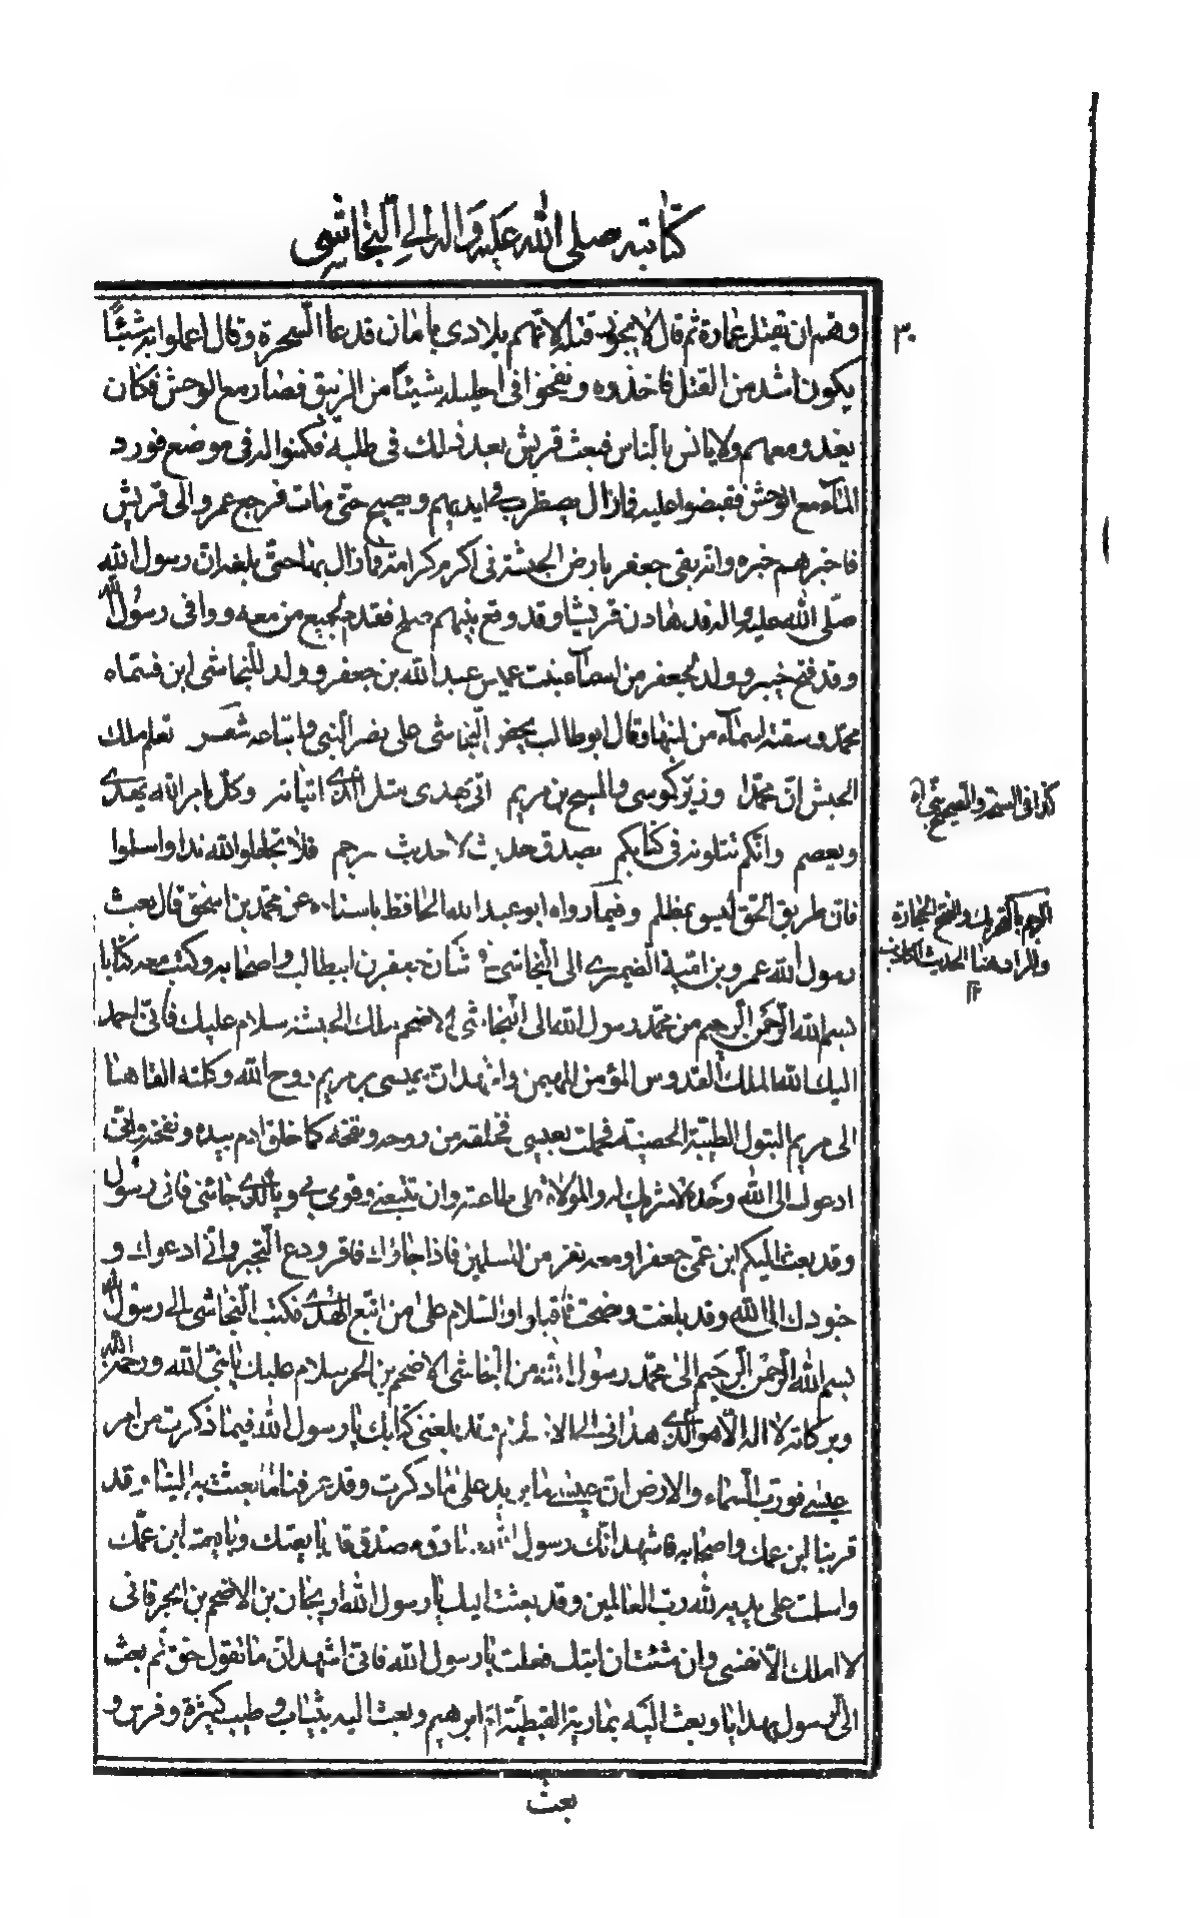 كتابته صلى الله عليه واله الى النجاشي
٣٠
وهم ان يقتل عمارة ثم قال لا يجوز قتله لانهم بلادى بامان فدعا السحرة وقال اعملوا به شيئا
يكون اشد من القتل فاخذوه ونفخوا فى احليله شيئا من الزيبق فصار مع الوحش فكان
يغدو معهم ولا يانس بالناس فبعث قريش بعد ذلك فى طلبه فكمنوا له فى موضع فورد
الماء مع الوحش فقبضوا عليه فما زال يضطرب فى ايديهم ويصيح حتى مات فرجع عمرو الى قريش
فاخبرهم خبره وانه بقى جعفر بارض الحبشة فى اكرم كرامة فما زال بها حتى بلغه ان رسول الله
صلى الله عليه واله قد هادن قريشا وقد وقع بينهم صلح فقدم بجميع من معه ووافى رسول الله
وقد فتح خيبر وولد لجعفر من اسماء بنت عميس عبد الله بن جعفر وولد للنجاشى ابن فسماه
محمد وسقته اسماء من لبنها وقال ابو طالب يحض النجاشى على نصر النبى واتباعه شعر تعلم مليك
الحبش ان محمدا وزير كموسى والمسيح بن مريم اتى بهدى مثل الذى اتيا به وكل بامر الله يهدى
ويعصم وانكم تتلونه فى كتابكم بصدق حديث لا حديث مرجم فلا تجعلوا لله ندا واسلموا
فان طريق الحق ليس بمظلم وفيما رواه ابو عبد الله الحافظ باسناده عن محمد بن اسحق قال بعث
رسول الله عمرو بن امية الضمرى الى النجاشى فى شان جعفر بن ابيطالب واصحابه وكتب معه كتابا
بسم الله الرحمن الرحيم من محمد رسول الله الى النجاشى الاصحم ملك الحبشة سلام عليك فانى احمد
اليك الله الملك القدوس المؤمن المهيمن واشهد ان عيسى بن مريم روح الله وكلمته القاها
الى مريم البتول الطيبة الحصينة فحملت بعيسى فخلقه من روحه ونفخه كما خلق ادم بيده ونفخه وانى
ادعوك الى الله وحده لا شريك له والموالاة على طاعته وان تتبعنى وتؤمن بى وبالذى جاءنى فانى رسول
وقد بعثت اليكم ابن عمى جعفرا ومعه نفر من المسلمين فاذا جاؤك فاقر ودع التجبر وانى ادعوك و
جنودك الى الله وقد بلغت ونصحت فاقبلوا والسلام على من اتبع الهدى فكتب النجاشى الى رسول الله
بسم الله الرحمن الرحيم الى محمد رسول الله من النجاشى الاصحم بن ابحر سلام عليك يا نبى الله ورحمة الله
وبركاته لا اله الا هو الذى هدانى الى الاسلام وقد بلغنى كتابك يا رسول الله فيما ذكرت من امر
عيسى فورب السماء والارض ان عيسى ما يزيد على ما ذكرت وقد عرفنا ما بعثت به الينا وقد
قربنا ابن عمك واصحابه فاشهد انك رسول الله صادقا مصدقا قد بايعتك وبايعت ابن عمك
واسلمت على يديه لله رب العالمين وقد بعثت اليك يا رسول الله اريحان بن الاصحم بن ابحر فانى
لا املك الا نفسى وان شئت ان اتيك فعلت يا رسول الله فانى اشهد ان ما تقول حق ثم بعث
الى الرسول بهدايا وبعث اليه بمارية القبطية ام ابرهيم وبعث اليه بثياب وطيب كثيرة وفرس و
بعث
كذا فى النسخ والصحيح
الرجم بالتحريك والفتح الحجارة
والمراد هنا الحديث الكاذب